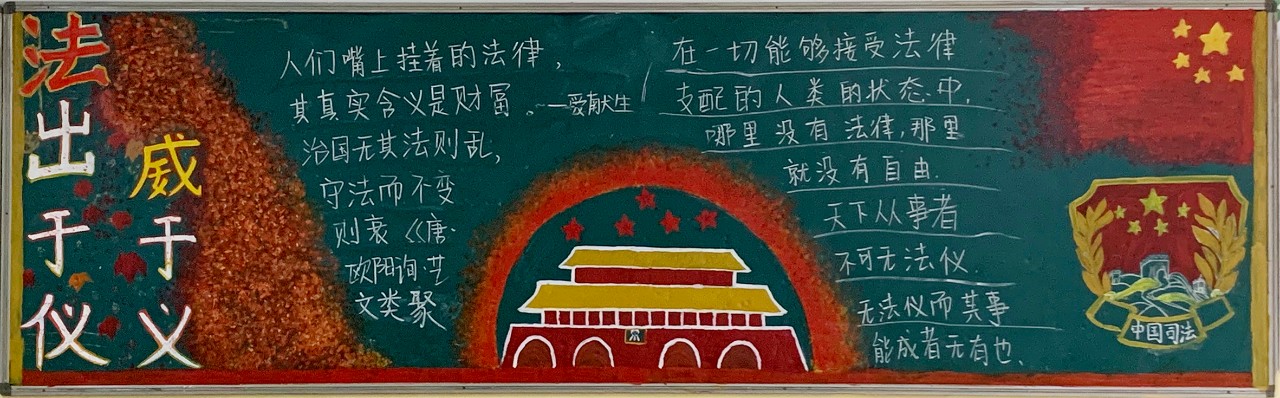 法出于仪
威于义
人们嘴上挂着的法律，
其真实含义是财富。——爱献生
治国无其法则乱，
守法而不变
则衰《唐·
欧阳询·艺
文类聚
在一切能够接受法律
支配的人类的状态中，
哪里没有法律，那里
就没有自由.
天下从事者
不可无法仪.
无法仪而其事
能成者无有也、
中国司法